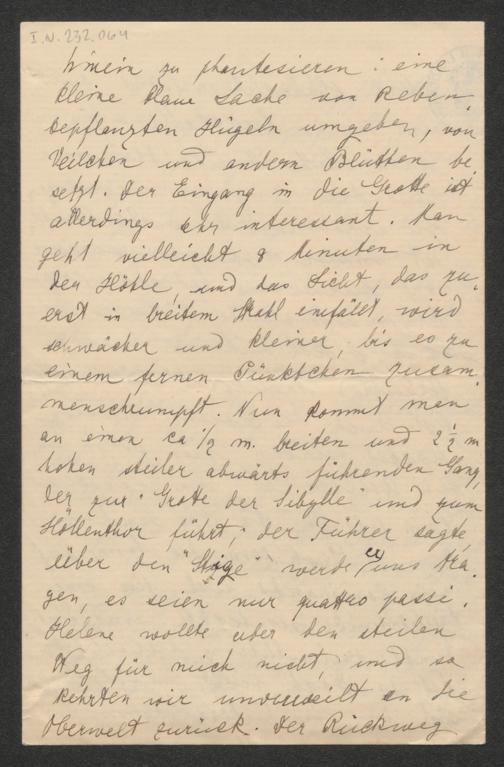 I.N. 232.064
hinein zu phantasieren: eine
kleine blaue Lache von Reben
bepflanzten Hügeln umgeben, von
Veilchen und andern Blüthen be
setzt. Der Eingang in die Grotte ist
allerdings sehr interessant. Man
geht vielleicht 8 Minuten in
der Höhle, und das Licht, das zu,
erst in breitem Strahl einfält, wird
schwächer und kleiner, bis es zu
einem fernen Pünktchen zusam,
menschrumpft. Nun kommt man
an einen ca 1/2 m. breiten und 2 1/2 m
hohen steiler abwärts führenden Gang,
der zur "Grotte der Sibylle" und zum
Höllenthor führt; der Führer sagte,
über den "Stige" werde er uns tra,
gen, es seien nur quattro passi.
Helene wollte aber den steilen
Weg für mich nicht, und so
kehrten wir unverweilt an die
Oberwelt zurück. Der Rückweg